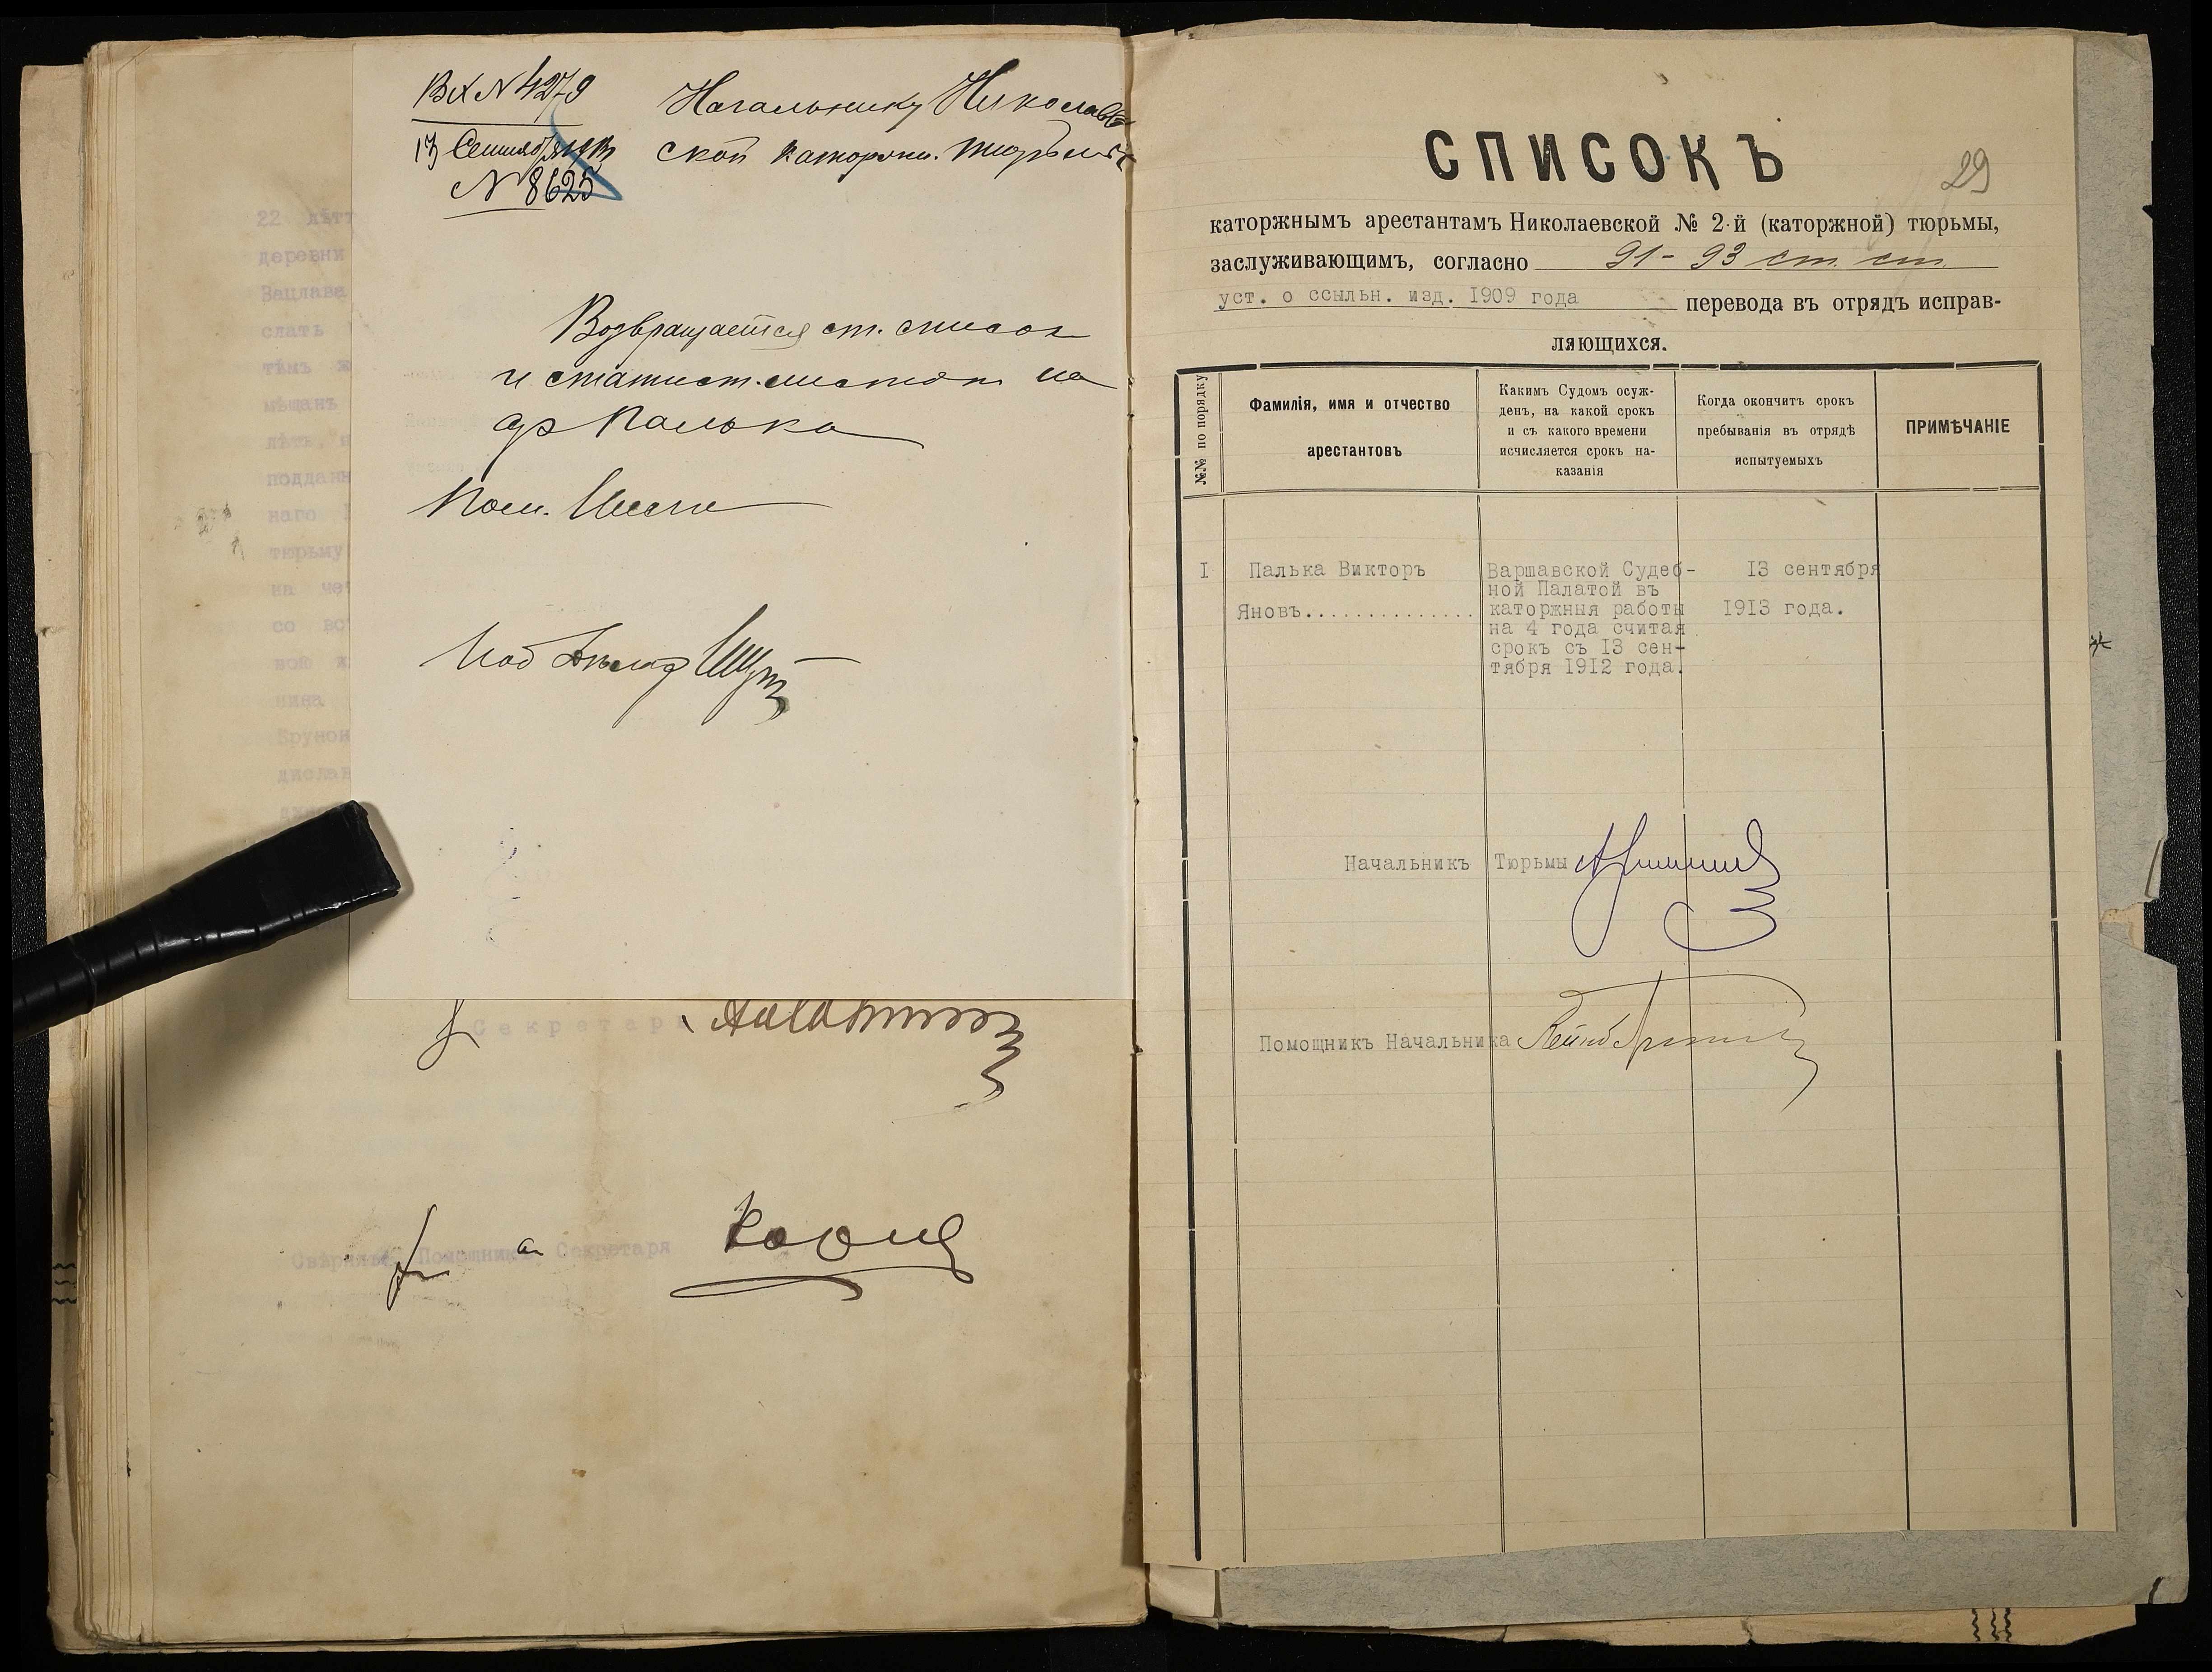 Вх N 4279
13 Сентября
N 8625
Начальнику Николаев
ской каторжн. тюрьмы
Возвращается ст. список
и статист. листок на
ар Палька
Пом.
22 лѣтъ
деревни
Вацлава
слать
тѣмъ ж
мѣщанъ
лѣтъ, н
подданн
наго
тюрьму
на чет
со вс
вою ж
нина
Бруноѝ
дислав
Секретарь
Свѣрялъ: Помощникъ Секретаря
а
СПИСОКЪ
29
каторжнымъ арестантамъ Николаевской № 2-й (каторжной) тюрьмы,
заслуживающимъ, согласно 91-93 ст. ст.
уст. о ссыльн. изд. 1909 года перевода въ отрядъ исправ-
ляющихся.
№№ по порядку
Фамилія, имя и отчество
арестантовъ
Какимъ Судомъ осуж-
денъ, на какой срокъ
и съ какого времени
исчисляется срокъ на-
казанія
Когда окончитъ срокъ
пребыванія въ отрядѣ
испытуемыхъ
ПРИМѢЧАНІЕ
I
Палька Викторъ
Яновъ...............
Варшавской Судеб-
ной Палатой въ
каторжныя работы
на 4 года считая
срокъ съ 13 сен-
тября 1912 года.
13 сентября
1913 года.
Начальникъ Тюрьмы
Помощникъ Начальника